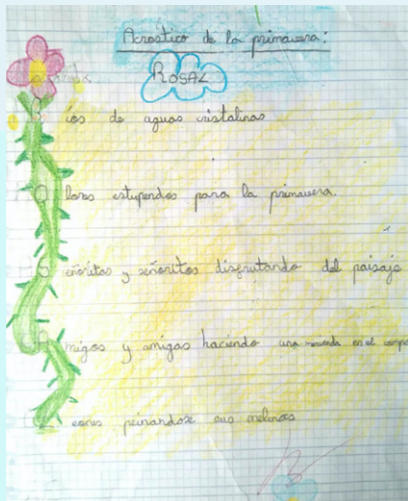 Acróstico de la primavera:
ROSAL
Ríos de aguas cristalinas
Olores estupendos para la primavera.
Señoritas y señoritos disfrutando del paisaje
Amigos y amigas haciendo una merienda en el campo
Leones peinandose sus melenas